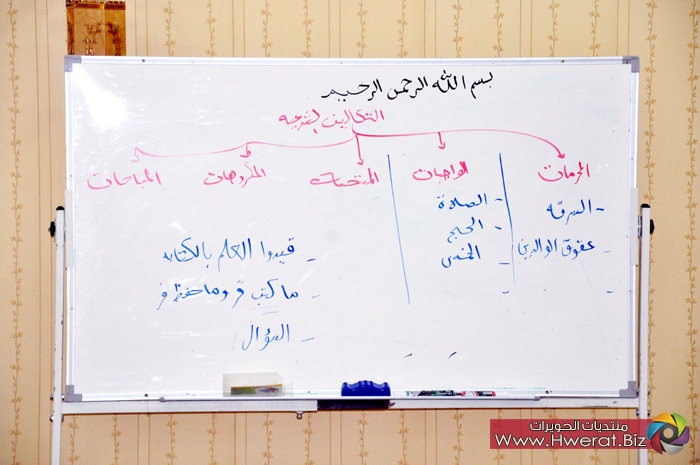 بسم الله الرحمن الرحيم
التكاليف الشرعيه
المحرمات
الواجبات
المستحبات
المكروهات
المباحات
- السرقه
- عقوق الوالدين
-
- الصلاة
- الحج
- الخمس
-
- قيدوا العلم بالكتابه
- ما كتب قر وما حفظ فر
- السؤال
منتديات الحويرات
www.Hwerat.Biz